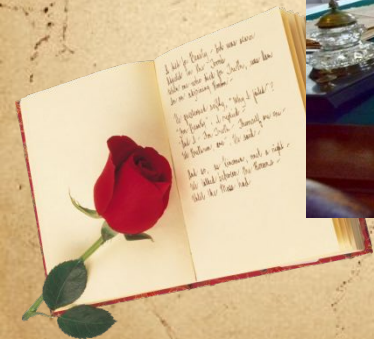 I died for Beauty - but was scarce
Adjusted in the Tomb
When one who died for Truth, was lain
In an adjoining Room -
He questioned softly, "Why I failed"?
"For Beauty", I replied -
"And I - for Truth - Themself are One -
We Brethren, are", He said -
And so, as Kinsmen, met a Night -
We talked between the Rooms -
Until the Moss had